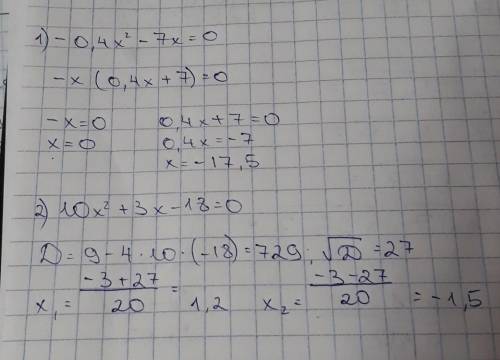 1) -0,4x² - 7x = 0
-x (0,4x + 7) = 0
-x = 0    0,4x + 7 = 0
x = 0    0,4x = -7
x = -17,5
2) 10x² + 3x - 18 = 0
D = 9 - 4 · 10 · (-18) = 729; √D = 27
x₁ = (-3 + 27)/20 = 1,2    x₂ = (-3 - 27)/20 = -1,5